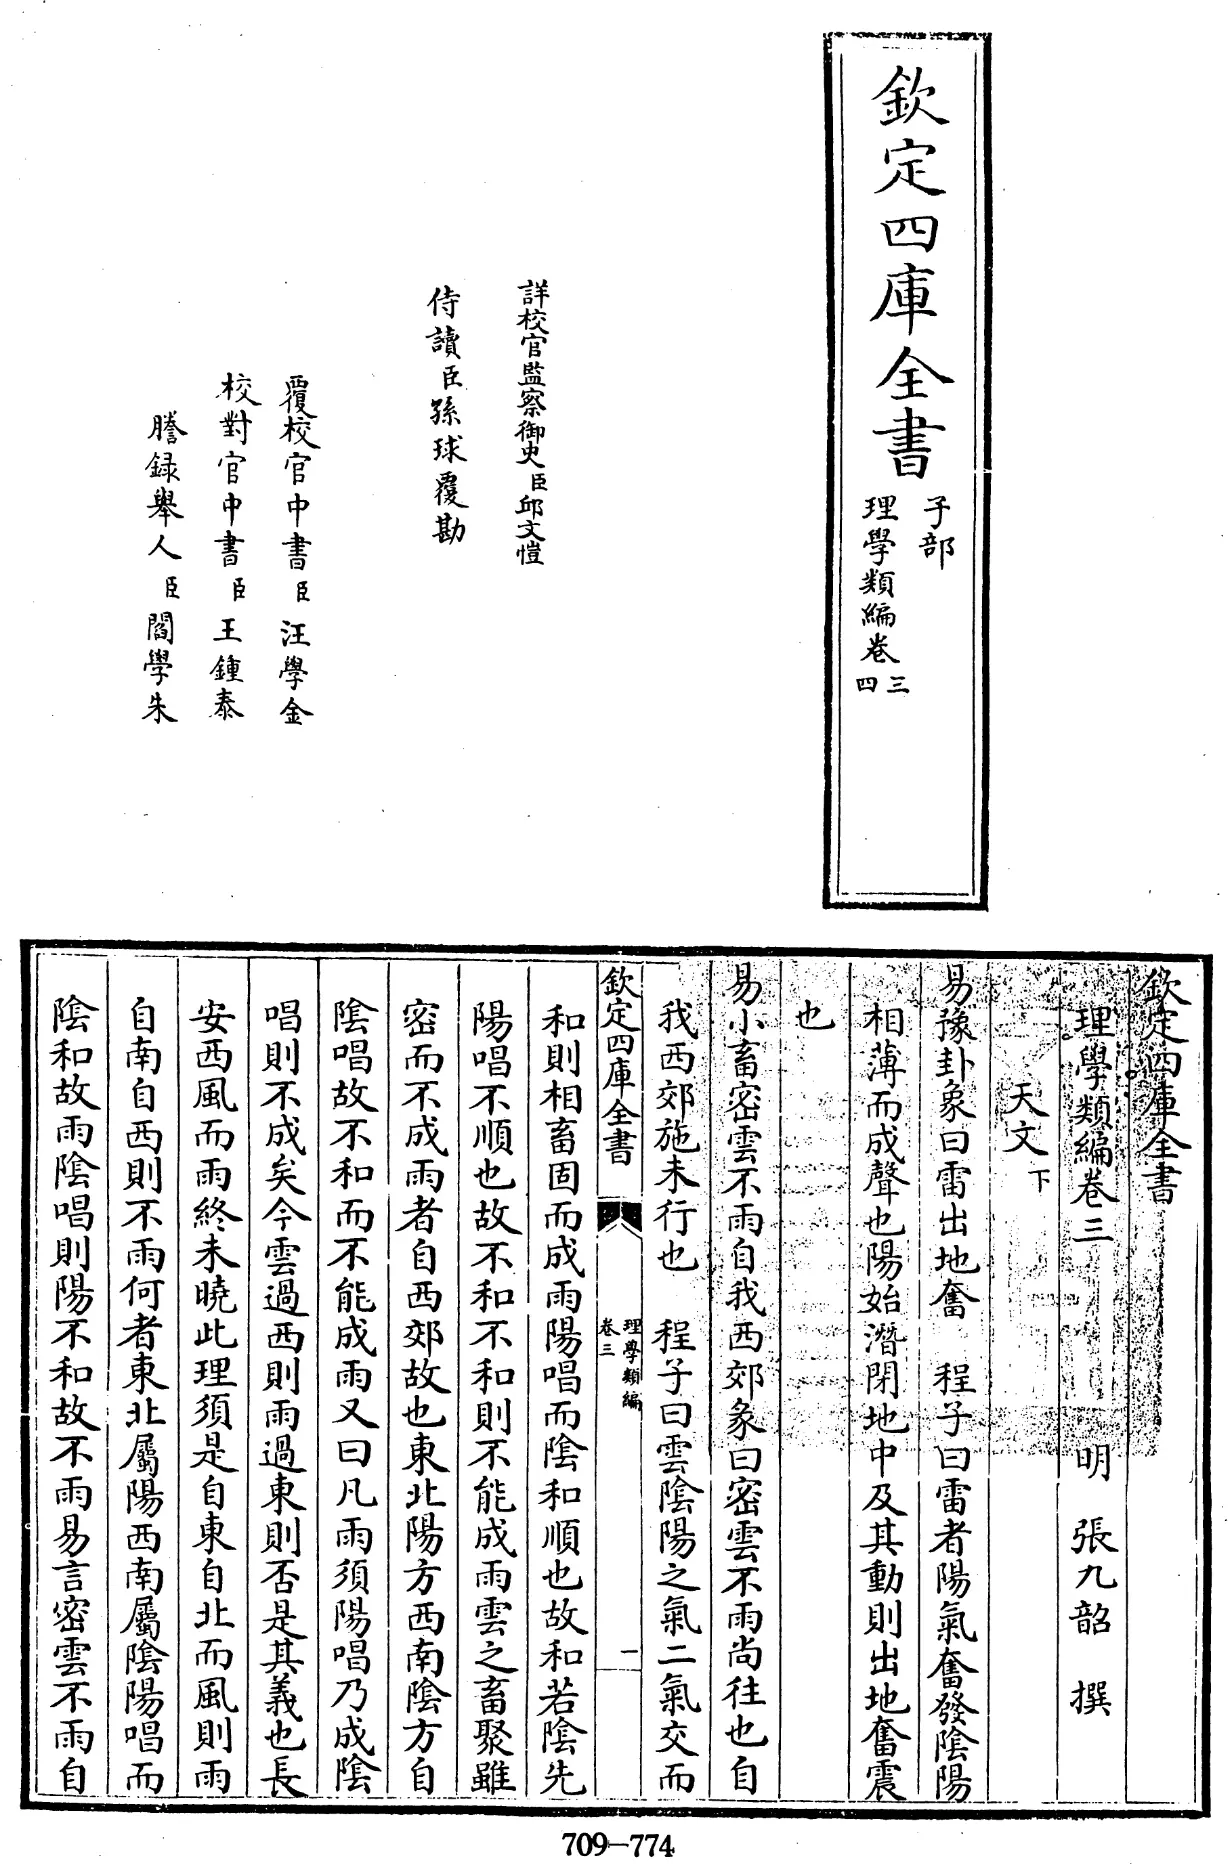 欽定四庫全書
子部
理學類編卷三四
詳校官監察御史臣邱文愷
侍讀臣孫球覆勘
覆校官中書臣汪學金
校對官中書臣王鍾泰
謄録舉人臣閻學朱
欽定四庫全書
理學類編卷三
明 張九韶 撰
天文下
易豫卦象曰雷出地奮 程子曰雷者陽氣奮發陰陽
相薄而成聲也陽始潛閉地中及其動則出地奮震
也
易小畜密雲不雨自我西郊彖曰密雲不雨尚往也自
我西郊施未行也 程子曰雲陰陽之氣二氣交而
欽定四庫全書
理學類編
卷三
一
和則相畜固而成雨陽唱而陰和順也故和若陰先
陽唱不順也故不和不和則不能成雨雲之畜聚雖
密而不成雨者自西郊故也東北陽方西南陰方自
陰唱故不和而不能成雨又曰凡雨須陽唱乃成陰
唱則不成矣今雲過西則雨過東則否是其義也長
安西風而雨終未曉此理須是自東自北而風則雨
自南自西則不雨何者東北屬陽西南屬陰陽唱而
陰和故雨陰唱則陽不和故不雨易言密雲不雨自
709-774